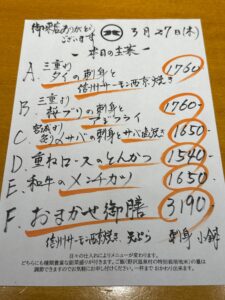 御来店ありがとう
ございます
3月27日(木)
本日の主菜
A 三重
タイの刺身と
信州サーモン西京焼き 1760
B 三重
桜ブリの刺身と
アジフライ 1760-
C サバの刺身とサバ塩焼き 1650-
D 重ねロースのとんかつ 1540-
E 和牛のメンチカツ 1650
F おまかせ御膳 3190-
信州サーモン西京焼 天ぷら 刺身 小鉢
日々の仕入れによりメニューが変わります。